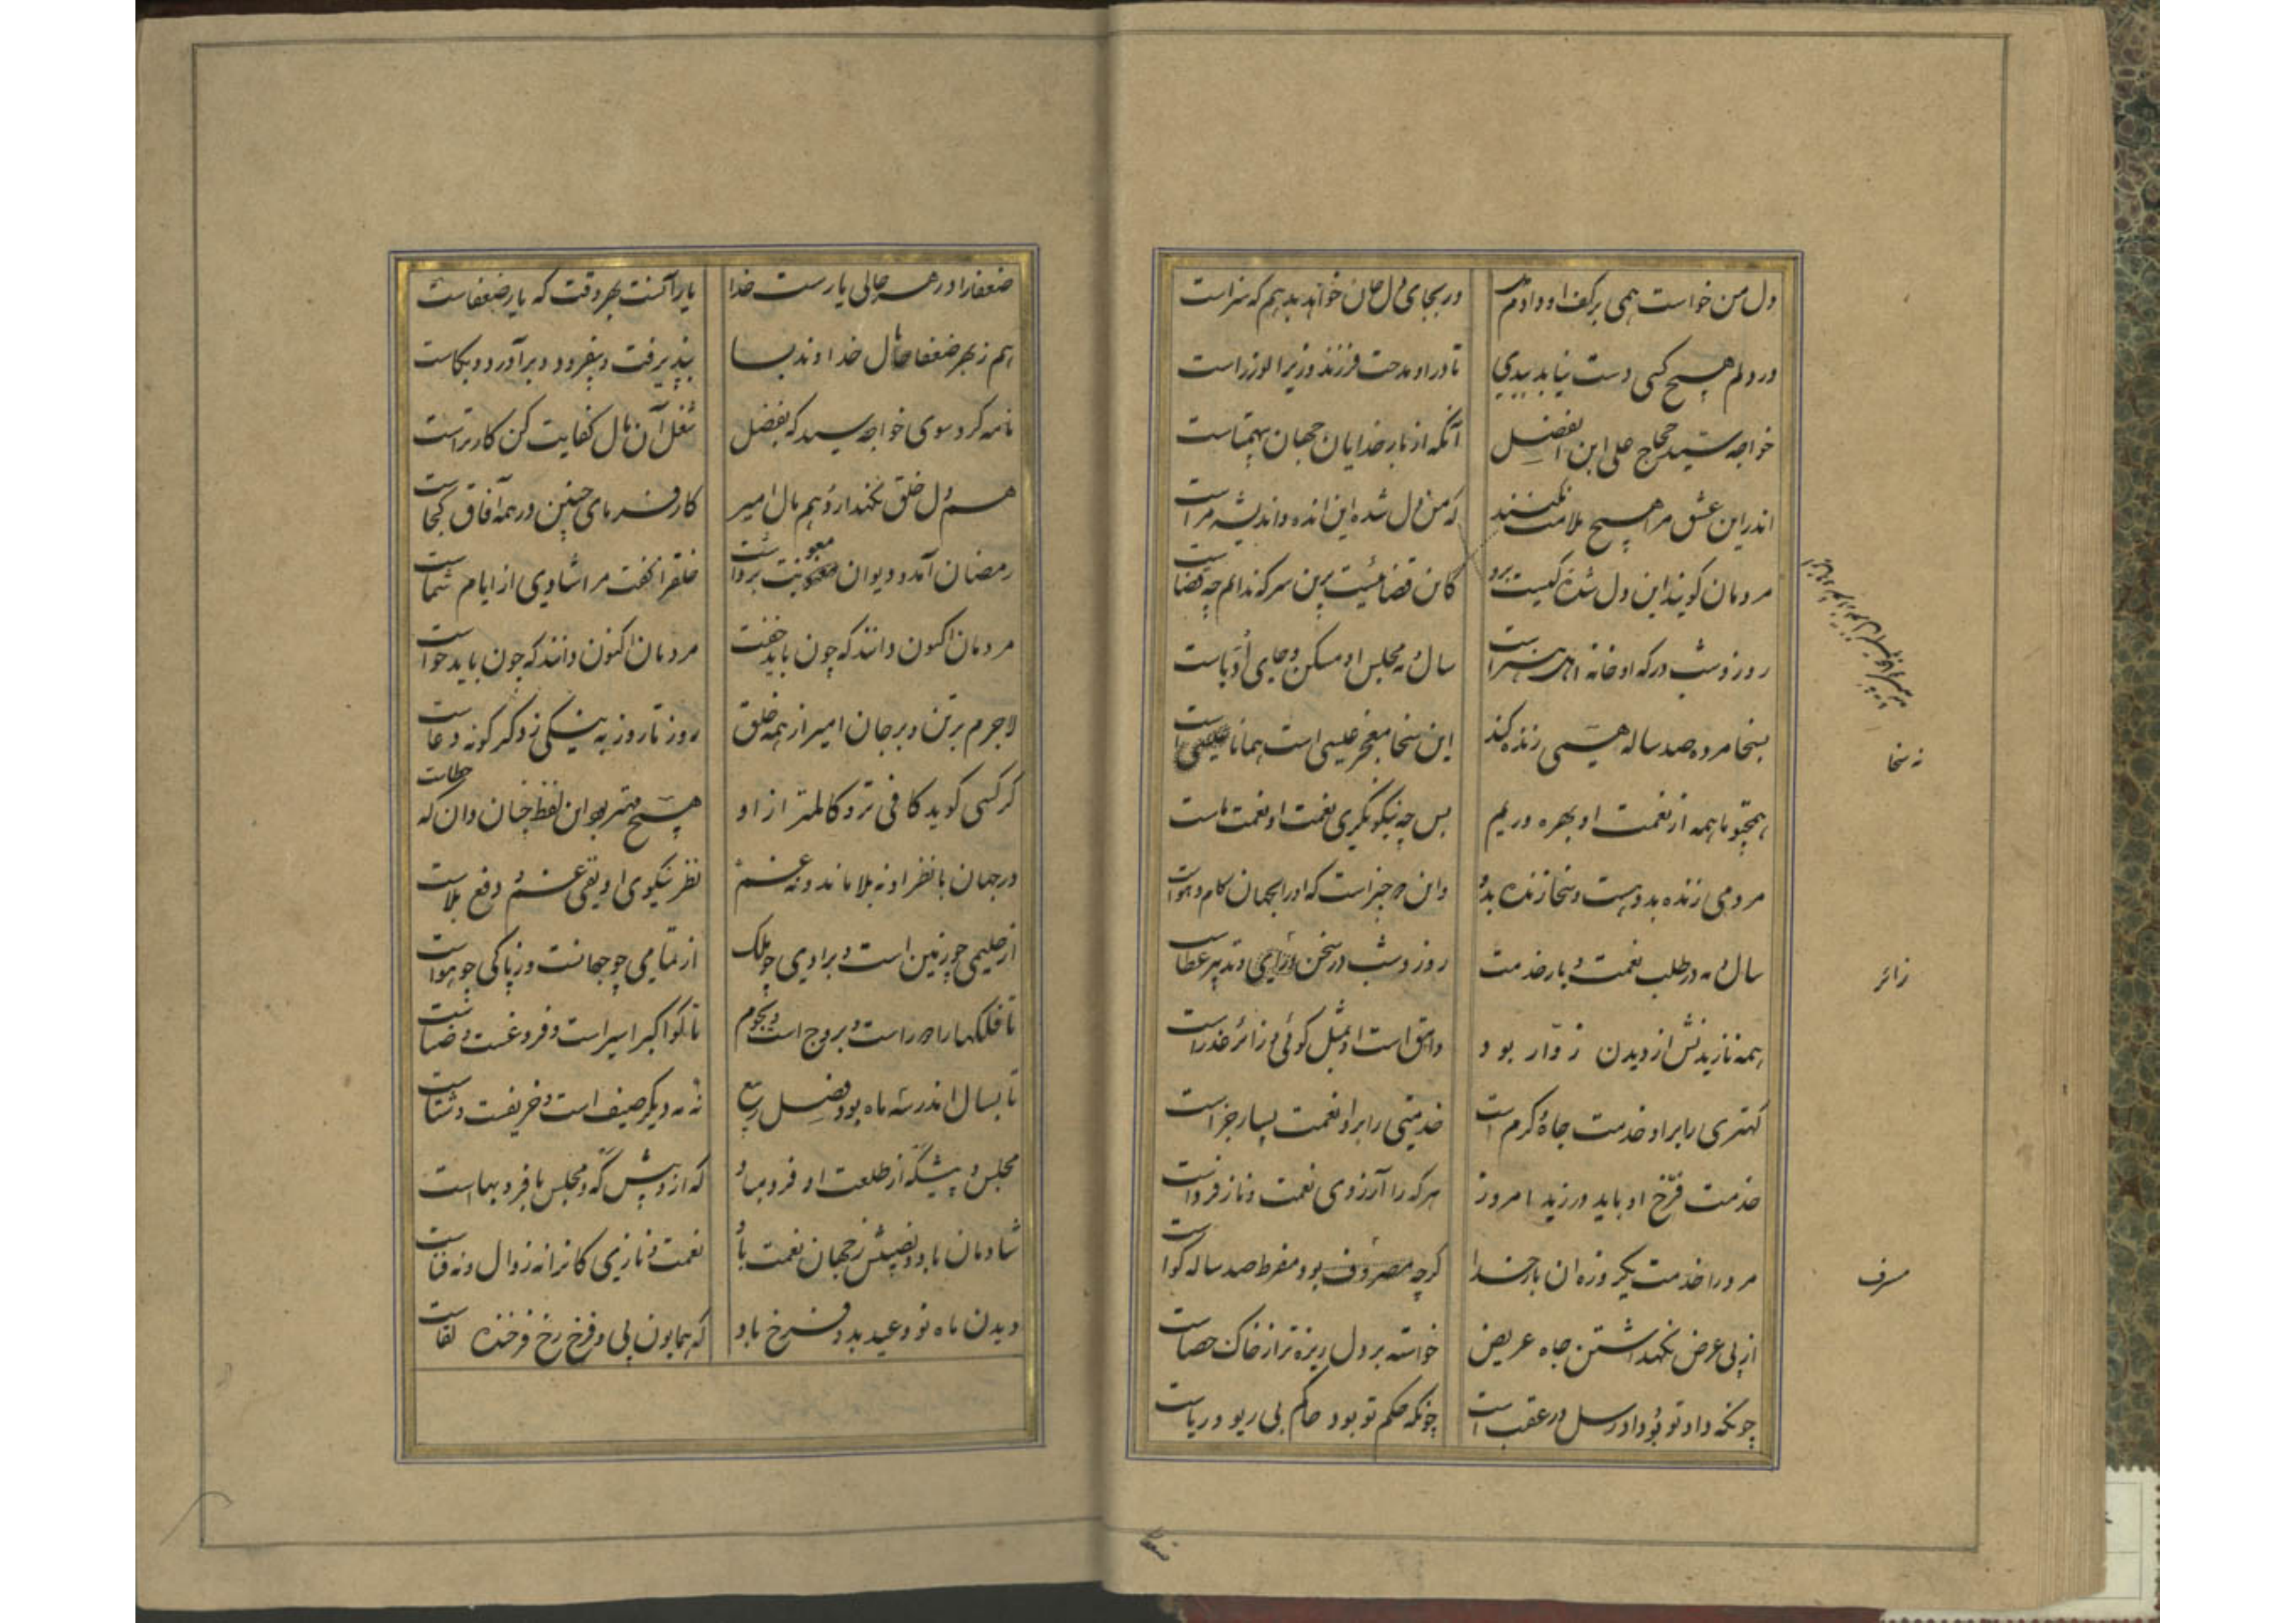 دل من خواست همی بر کف او دادم دل
ور بجای دل جان خواهد بدهم که سزاست
در دلم هیچ کسی دست نیابد ببدی
تا در او مدحت فرزند وزیر الوزراست
خواجه سید حجاج علی ابن الفضل
آنکه از بار خدایان جهان بیهمتاست
اندر این عشق مرا هیچ ملامت نکنند
که من دل شده این انده و اندیشه مراست
مردمان گویند این دل شده کیست برو
کاین قضائیست برین سر که ندانم چه قضاست
روز و شب درگه او خانه اهل هنر است
سال و مه مجلس او مسکن و جای ادباست
بسخا مرده صد ساله همی زنده کند
این سخا معجز عیسی است همانا عیسی است
همچو ما همه از نعمت او بهره وریم
پس چه نیکو نگری نعمت او نعمت ماست
مردمی زنده بدویست و سخا زنده بدو
واین دو چیز است که او را بجهان کام و هواست
سال و مه در طلب نعمت و بار خدمت
روز و شب در سخن و رای و تدبیر عطاست
همه نازیدنش از دیدن زوار بود
وامق است او بمثل گوئی و زائر عذراست
کهتری را بر او خدمت جاه و کرم است
خدمتی را بر او نعمت بسیار جزاست
خدمت فرخ او باید ورزید امروز
هر که را آرزوی نعمت و ناز فرداست
مرد را خدمت یکروزه آن بار خدا
گرچه مصروف بود مفرط صد ساله گواست
از پی عرض نگهداشتن جاه عریض
خواسته بر دل ریزه تر از خاک حصاست
چونکه داد تو بود دادرسل در عقب است
چونکه حکم تو بود حاکم بی ریو و ریاست
نه سخا
زائر
مسرف
ضعفا
ضعفا را در هر حالی یارست خدا
یار آنست بهر وقت که یار ضعفاست
هم ز بهر ضعفا مال خداوند بسا
بپذیرفت و بیفزود و برآورد و بکاست
نامه کرد سوی خواجه سید که بفضل
شغل آن مال کفایت کن کار تراست
هم دل خلق نگهدارد و هم مال امیر
کارفرمای چنین در همه آفاق کجاست
رمضان آمد و دیوان معونت برداشت
خلق را گفت مرا شادی از ایام شماست
مردمان اکنون دانند که چون باید خفت
مردمان اکنون دانند که چون باید خواست
لاجرم بر تن و بر جان امیر از همه خلق
روز تا روز به نیکی ز دگر گونه دعاست
گر کسی گوید کافی تر و کاملتر از او
هیچ مهتر بود این لفظ چنان دان که خطاست
در جهان با نظر او نه بلا ماند و نه غم
نظر نیکوی او نفی غم و دفع بلاست
از حلیمی چو زمین است و برادی چو فلک
از تمامی چو جهانست و ز پاکی چو هواست
تا فلکها را دور است و بروج است و نجوم
تا کواکب را سیر است و فروغست و ضیاست
تا بسال اندر سه ماه بود فصل ربیع
نه مه دیگر صیف است و خریفست و شتاست
مجلس و پیشگه از طلعت او فرد مباد
که از او پیش گه و مجلس با فر و بهاست
شادمان باد و نصیبش ز جهان نعمت باد
نعمت و نازی کانرا نه زوال و نه فناست
دیدن ماه نو و عید بدو فرخ باد
که همایون پی و فرخ رخ و فرخنده لقاست